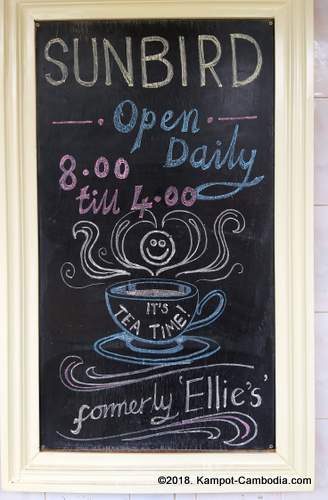 SUNBIRD
Open
Daily
8.00
till 4.00
IT'S
TEA TIME!
formerly 'Ellie's'
©2018. Kampot-Cambodia.com